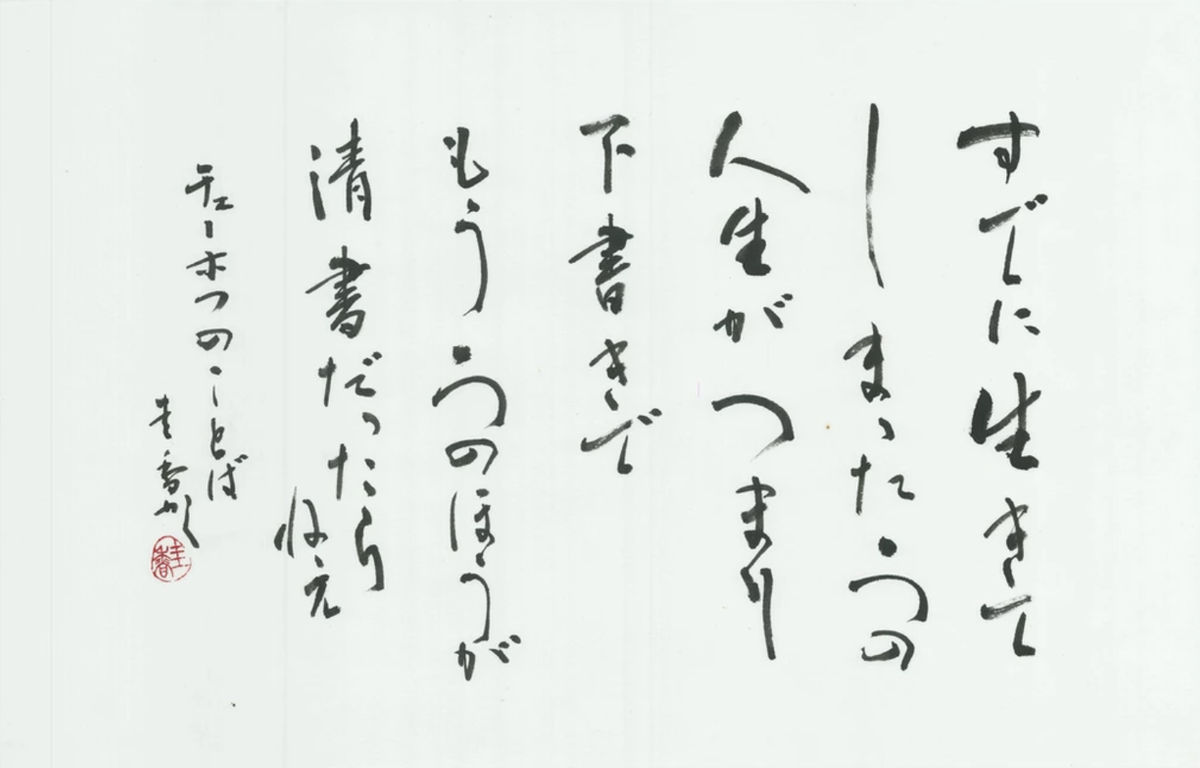 すでに生きて
しまった一つの
人生がつまり
下書きで
もう一つのほうが
清書だったら
ねえ
チェーホフのことば
圭香かく
圭香